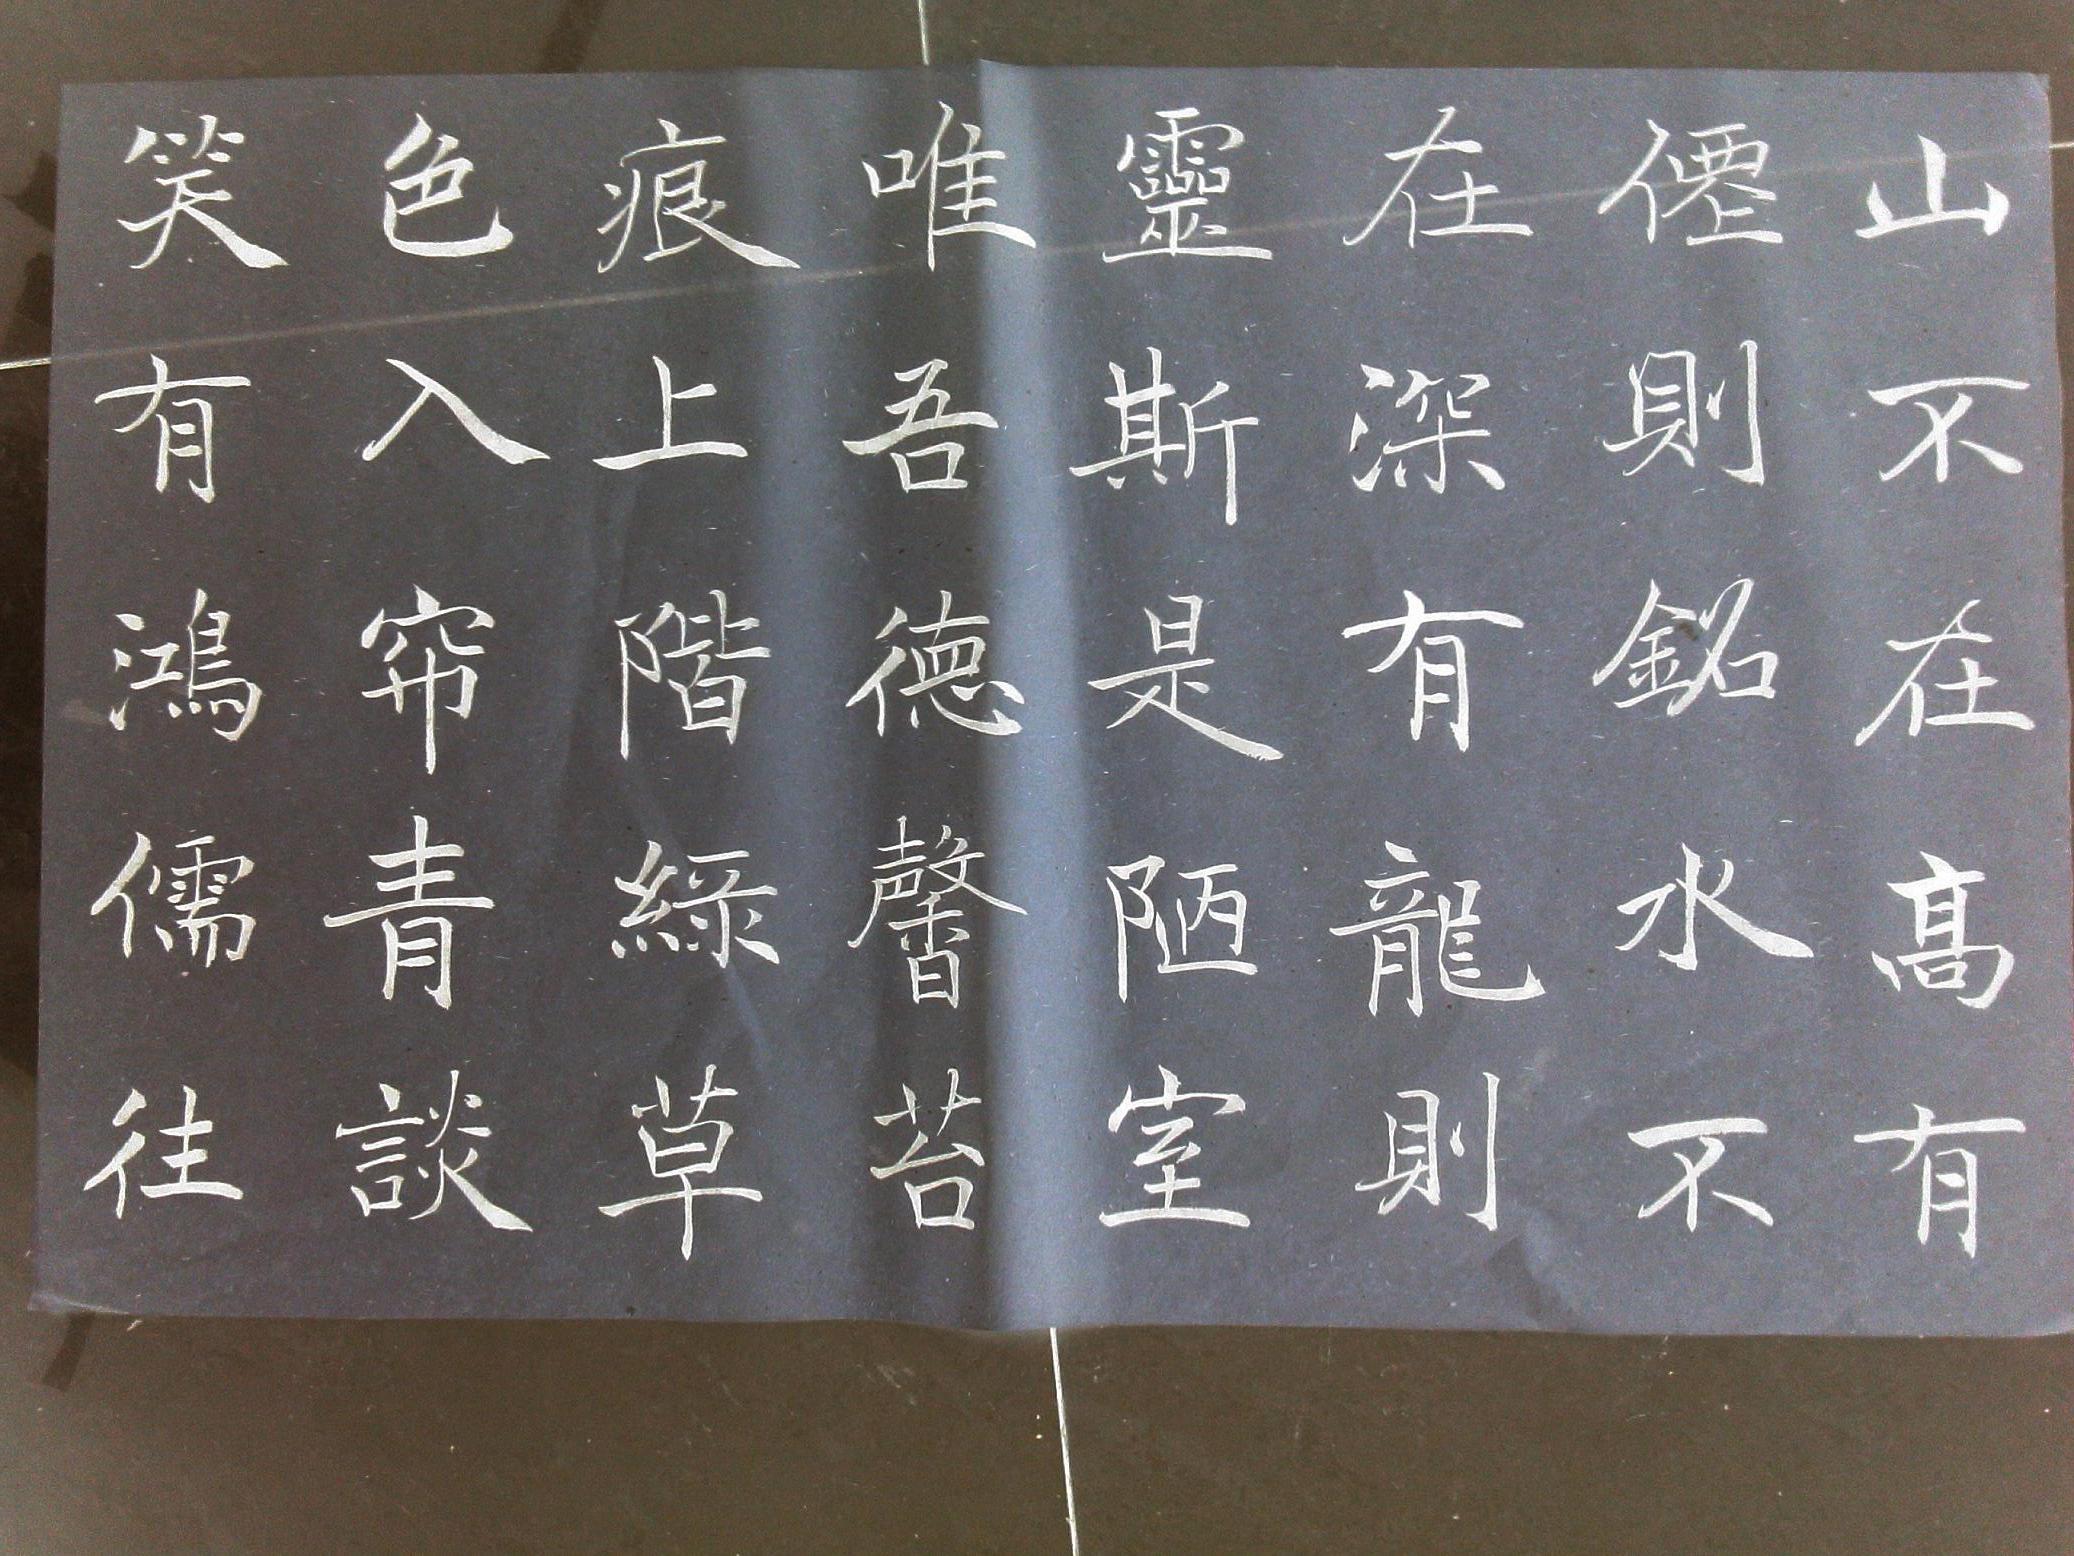 山不在高有
僊則銘水不
在深有龍則
靈斯是陋室
唯吾德馨苔
痕上階綠草
色入帘青談
笑有鴻儒往